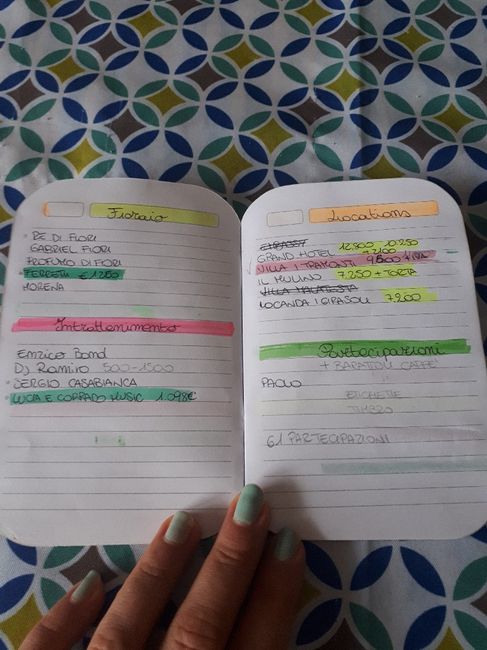 Fioraio
RE DI FIORI
GABRIEL FIORI
PROFUMO DI FIORI
FERRETTI €1250
MORENA
Intrattenimento
Enrico Bond
DJ Ramiro 500-1500
SERGIO CASABIANCA
LUCA E CORRADO MUSIC 1.098€
Locations
GRAND HOTEL 12.800 10.250
VILLA I TRAMONTI 9.800
IL MULINO 7.250 + TORTA
VILLA MALATESTA
LOCANDA I GIRASOLI 7.200
Partecipazioni
+ BARATTOLI CAFFE'
PAOLO
ETICHETTE
TIMBRO
61 PARTECIPAZIONI